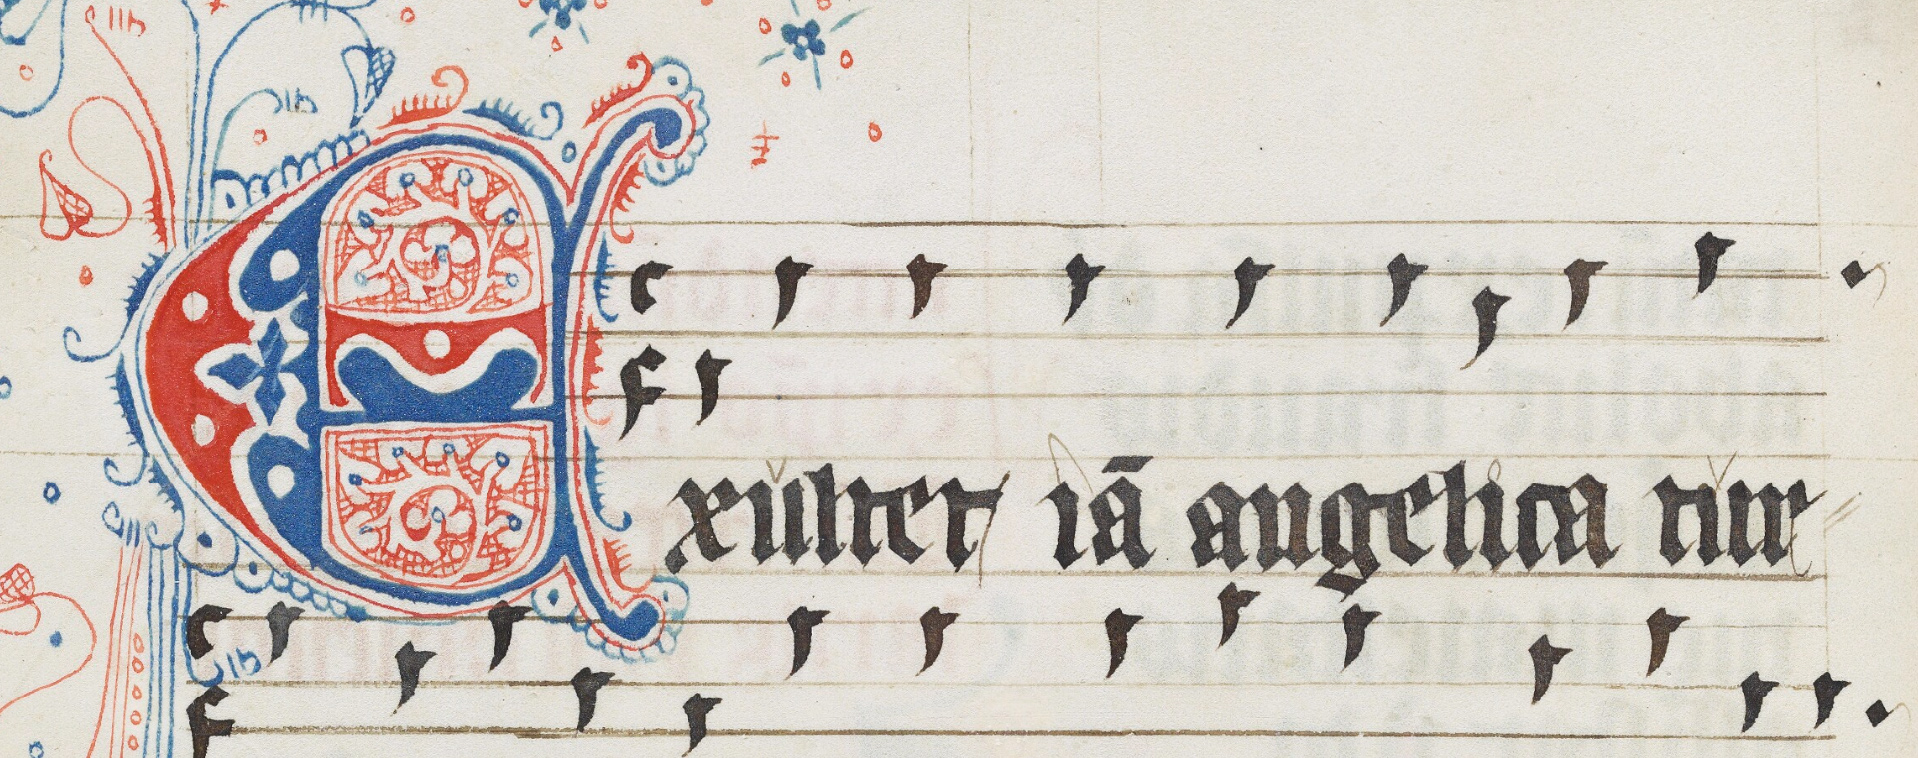 Exultet iā angelica tur